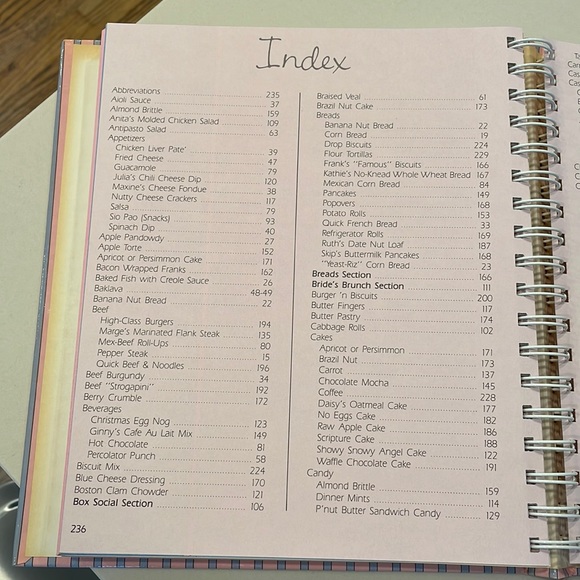 Index
Abbreviations 235
Aioli Sauce 37
Almond Brittle 159
Anita's Molded Chicken Salad 109
Antipasto Salad 63
Appetizers
Chicken Liver Pate' 39
Fried Cheese 47
Guacamole 79
Julia's Chili Cheese Dip 120
Maxine's Cheese Fondue 38
Nutty Cheese Crackers 117
Salsa 79
Sio Pao (Snacks) 93
Spinach Dip 40
Apple Pandowdy 27
Apple Torte 152
Apricot or Persimmon Cake 171
Bacon Wrapped Franks 162
Baked Fish with Creole Sauce 26
Baklava 48-49
Banana Nut Bread 22
Beef
High-Class Burgers 194
Marge's Marinated Flank Steak 135
Mex-Beef Roll-Ups 80
Pepper Steak 15
Quick Beef & Noodles 196
Beef Burgundy 34
Beef "Strogapini" 192
Berry Crumble 172
Beverages
Christmas Egg Nog 123
Ginny's Cafe Au Lait Mix 149
Hot Chocolate 81
Percolator Punch 58
Biscuit Mix 224
Blue Cheese Dressing 170
Boston Clam Chowder 121
Box Social Section 106
Braised Veal 61
Brazil Nut Cake 173
Breads
Banana Nut Bread 22
Corn Bread 19
Drop Biscuits 224
Flour Tortillas 229
Frank's "Famous" Biscuits 166
Kathie's No-Knead Whole Wheat Bread 167
Mexican Corn Bread 84
Pancakes 149
Popovers 168
Potato Rolls 153
Quick French Bread 33
Refrigerator Rolls 169
Ruth's Date Nut Loaf 187
Skip's Buttermilk Pancakes 168
"Yeast-Riz" Corn Bread 23
Breads Section 166
Bride's Brunch Section 111
Burger 'n Biscuits 200
Butter Fingers 117
Butter Pastry 174
Cabbage Rolls 102
Cakes
Apricot or Persimmon 171
Brazil Nut 173
Carrot 137
Chocolate Mocha 145
Coffee 228
Daisy's Oatmeal Cake 177
No Eggs Cake 182
Raw Apple Cake 186
Scripture Cake 188
Showy Snowy Angel Cake 122
Waffle Chocolate Cake 191
Candy
Almond Brittle 159
Dinner Mints 114
P'nut Butter Sandwich Candy 129
236